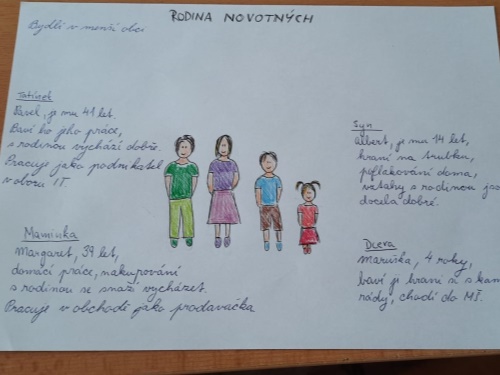 RODINA NOVOTNÝCH
Bydlí v menší obci
Tatínek
Pavel, je mu 41 let.
Baví ho jeho práce,
s rodinou vychází dobře.
Pracuje jako podnikatel
v oboru IT.
Maminka
Margaret, 39 let,
domácí práce, nakupování
s rodinou se snaží vycházet.
Pracuje v obchodě jako prodavačka
Syn
Albert, je mu 14 let,
hraní na trubku,
poflakování doma,
vztahy s rodinou jso
docela dobré.
Dcera
Maruška, 4 roky,
baví ji hraní si s kam
rády, chodí do MŠ.